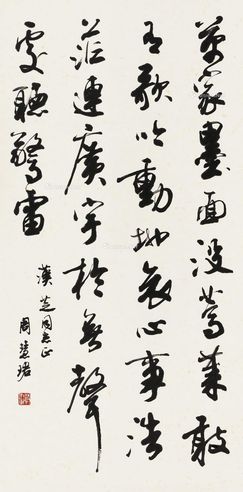 萬家墨面没蒿萊敢
有歌吟動地哀心事浩
茫連廣宇於無聲
處聽驚雷
漢芝同志正
周慧珺